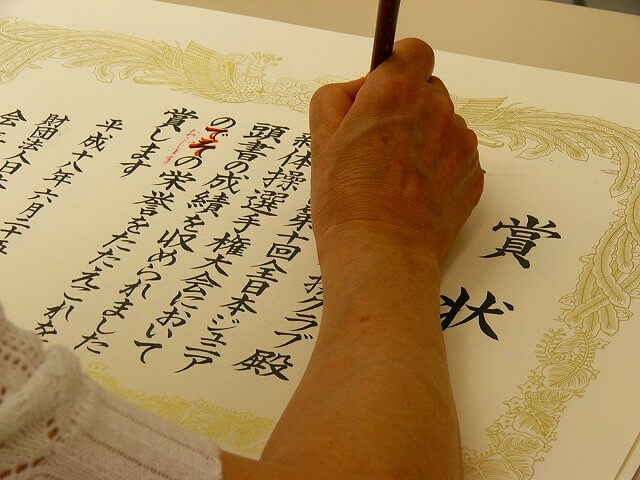 賞状
操クラブ 殿
第十回全日本ジュニア
新体操選手権大会において
頭書の成績を収められました
のでその栄誉をたたえこれを
賞します
平成十八年六月二十五
財団法人日本
会